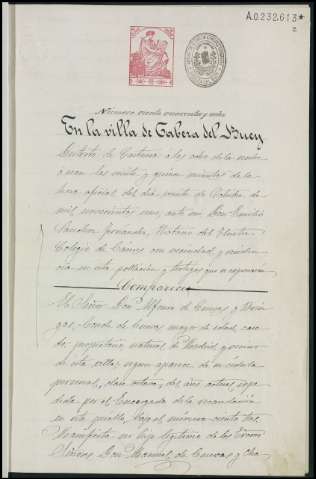 A.0.232.613*
Número ciento cuarenta y ocho
En la villa de Cabeza del Buey
á las ocho de la noche
ó sean las veinte y quince minutos de la
hora oficial del día veinte de Octubre de
mil novecientos uno, ante mi Don Emilio
Sánchez Fernández, Notario del Ilustre
Colegio de Cáceres con vecindad y residen-
cia en esta población y testigos que se expresarán
Comparece
El Señor Don Alfonso de Cuevas y
Conde de Cuevas mayor de edad, casa-
do, propietario natural de Madrid y vecino
de esta villa, según aparece de su cédula
personal, clase octava, del año actual, expe-
dida por el Encargado de la recaudación
en este pueblo, bajo el número ciento tres.
Manifiesta ser hijo legítimo de los Excmos
Señores Don Manuel de Cuevas y